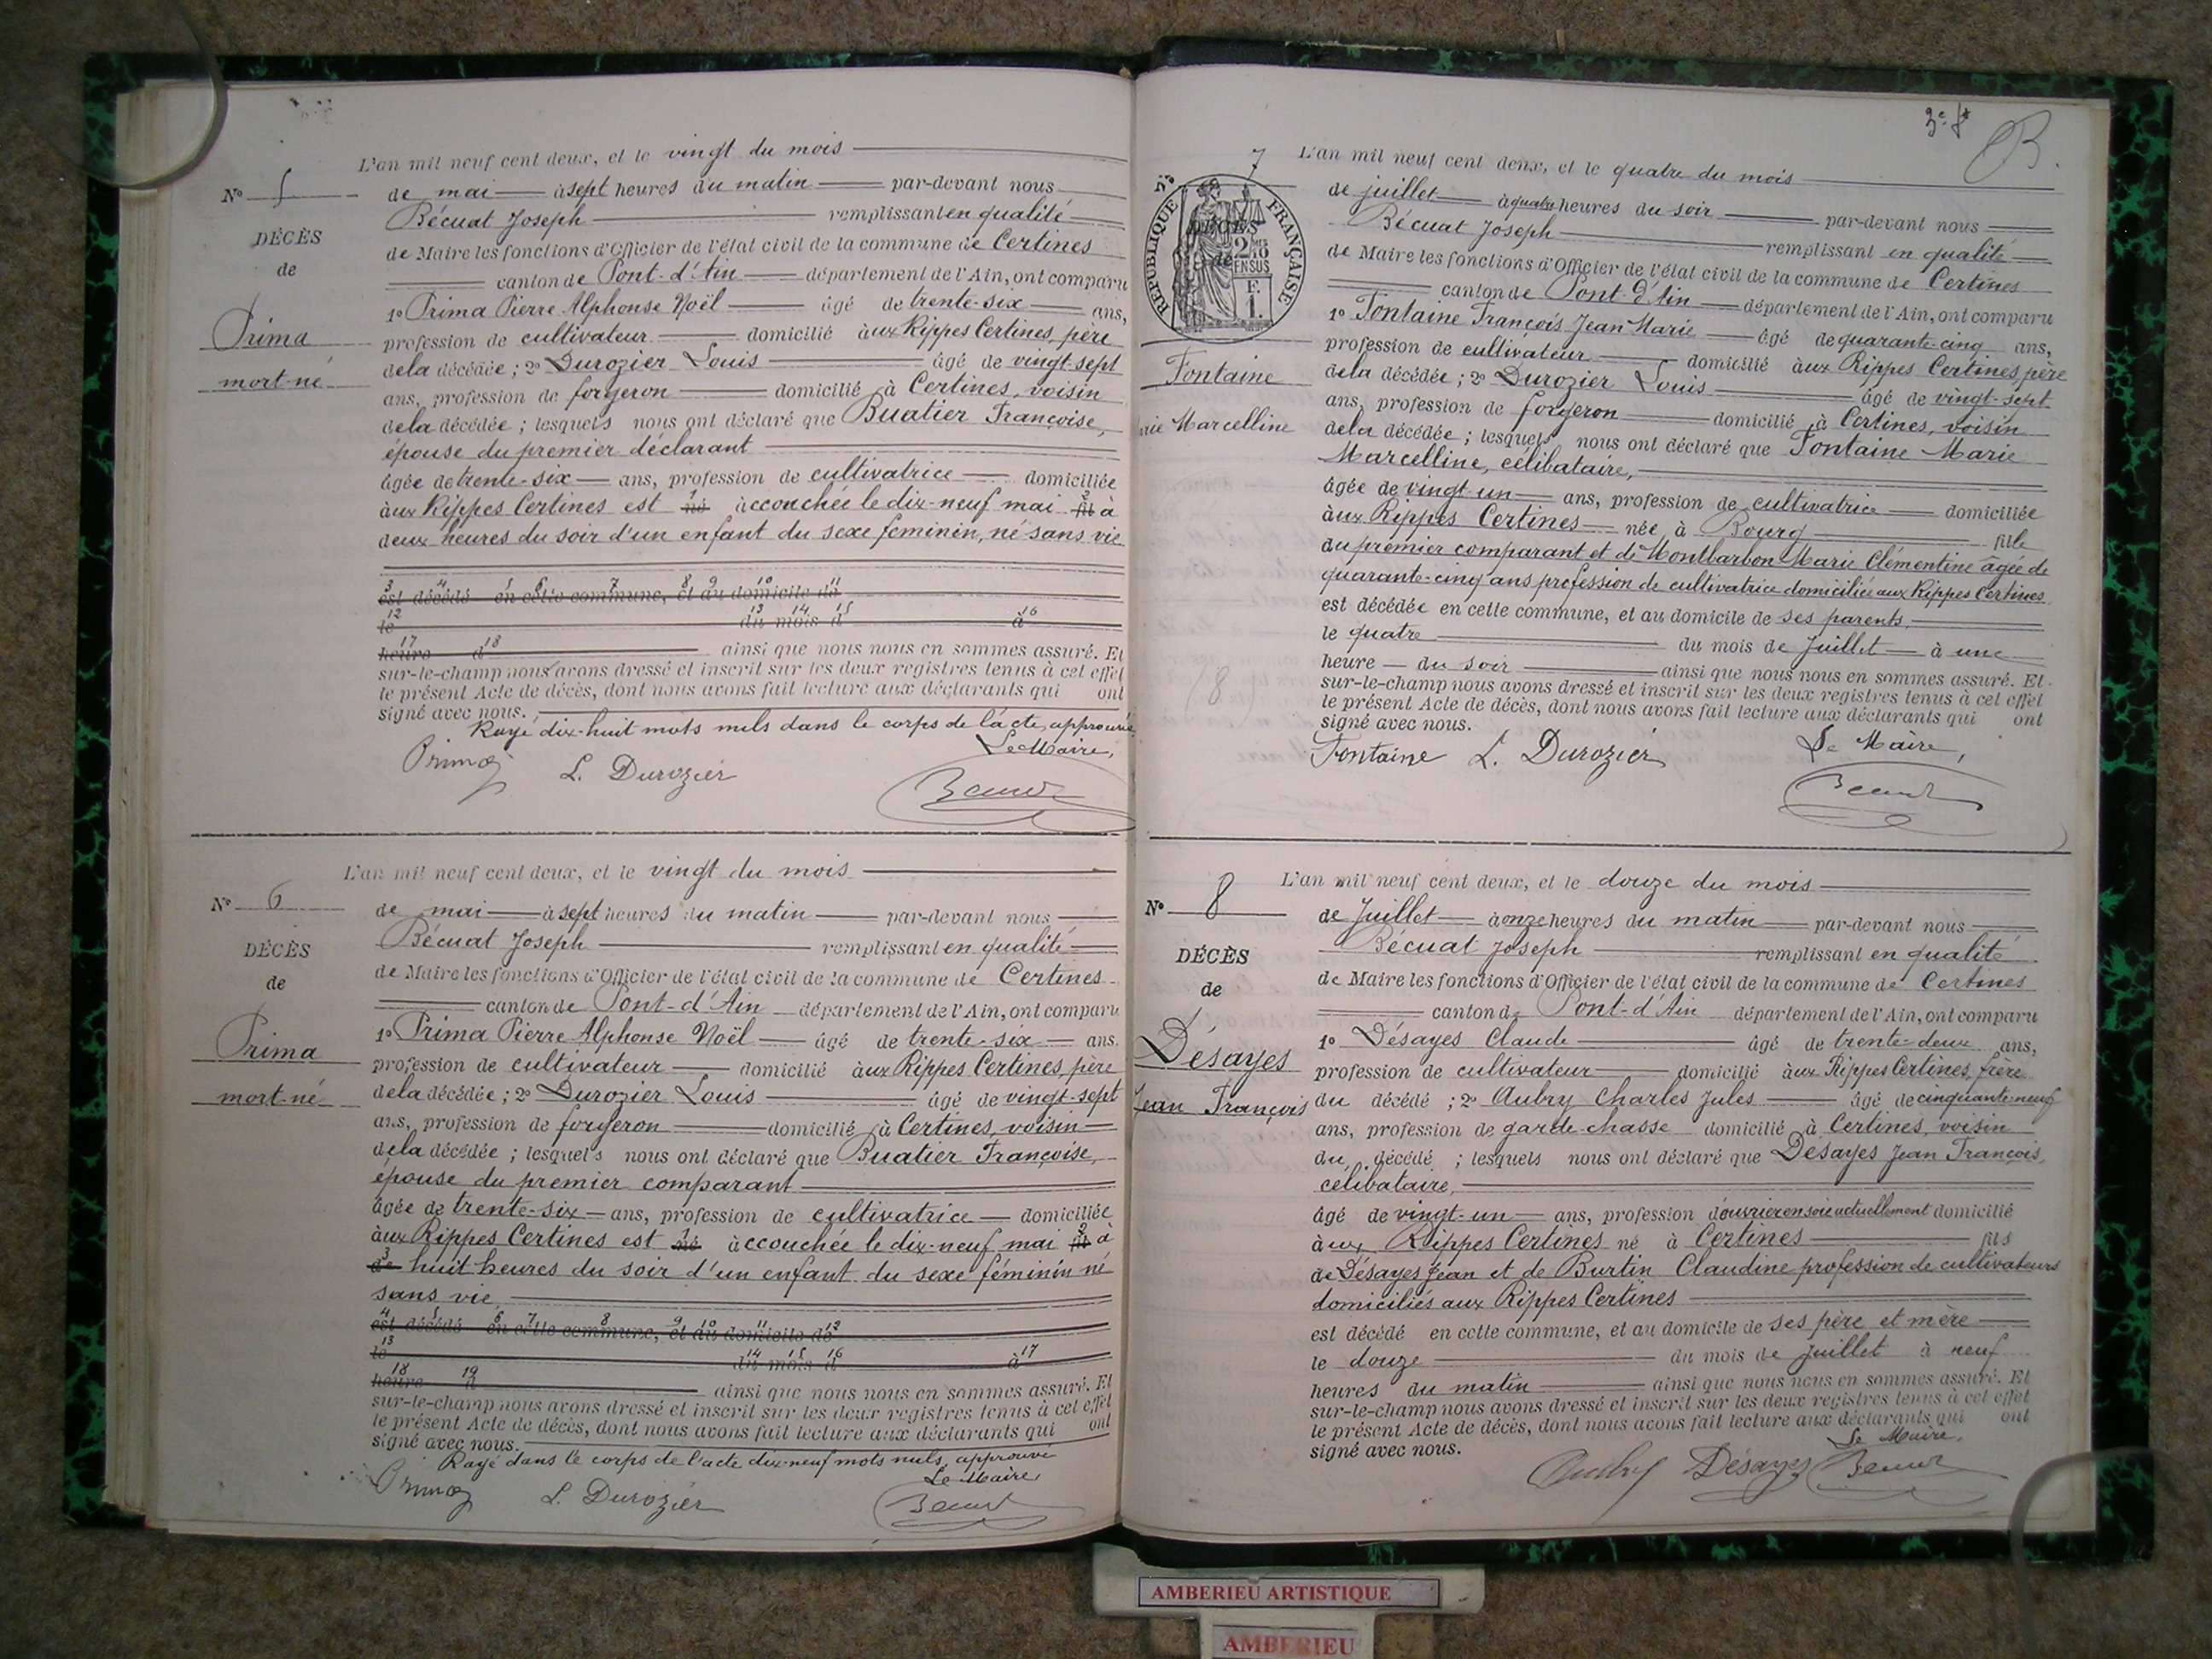 L'an mil neuf cent deux, et le vingt du mois
N° 5
de mai à sept heures du matin par-devant nous
Bécuat Joseph remplissant en qualité
DÉCÈS
de Maire les fonctions d'Officier de l'état civil de la commune de Certines
de
canton de Pont-d'Ain département de l'Ain, ont comparu
1° Prima Pierre Alphonse Noël âgé de trente-six ans,
Prima
profession de cultivateur domicilié aux Rippes Certines, père
mort-né
de la décédée ; 2° Durozier Louis âgé de vingt-sept
ans, profession de forgeron domicilié à Certines, voisin
de la décédée ; lesquels nous ont déclaré que Buatier Françoise,
épouse du premier déclarant
âgée de trente-six ans, profession de cultivatrice domiciliée
aux Rippes Certines est né accouchée le dix-neuf mai fils à
deux heures du soir d'un enfant du sexe feminin, né sans vie
est décédé en cette commune, et au domicile de
le du mois d à
heure d ainsi que nous nous en sommes assuré. Et
sur-le-champ nous avons dressé et inscrit sur les deux registres tenus à cet effet
le présent Acte de décès, dont nous avons fait lecture aux déclarants qui ont
signé avec nous.
Rayé dix-huit mots nuls dans le corps de l'acte, approuvé
Le Maire,
Prima L. Durozier Bécuat
L'an mil neuf cent deux, et le vingt du mois
N° 6
de mai à sept heures du matin par-devant nous
Bécuat Joseph remplissant en qualité
DÉCÈS
de Maire les fonctions d'Officier de l'état civil de la commune de Certines
de
canton de Pont-d'Ain département de l'Ain, ont comparu
1° Prima Pierre Alphonse Noël âgé de trente-six ans.
Prima
profession de cultivateur domicilié aux Rippes Certines, père
mort-né
de la décédée ; 2° Durozier Louis âgé de vingt-sept
ans, profession de forgeron domicilié à Certines, voisin
de la décédée ; lesquels nous ont déclaré que Buatier Françoise,
épouse du premier comparant
âgée de trente-six ans, profession de cultivatrice domiciliée
aux Rippes Certines est né accouchée le dix-neuf mai fils à
de huit heures du soir d'un enfant du sexe féminin né
sans vie
est décédé en cette commune, et au domicile de
le du mois d à
heure d ainsi que nous nous en sommes assuré. Et
sur-le-champ nous avons dressé et inscrit sur les deux registres tenus à cet effet
le présent Acte de décès, dont nous avons fait lecture aux déclarants qui ont
signé avec nous.
Rayé dans le corps de l'acte dix-neuf mots nuls, approuvé
Le Maire,
Prima L. Durozier Bécuat
L'an mil neuf cent deux, et le quatre du mois
N° 7
de juillet à quatre heures du soir par-devant nous
Bécuat Joseph remplissant en qualité
RÉPUBLIQUE FRANÇAISE
DÉCÈS
de
de Maire les fonctions d'Officier de l'état civil de la commune de Certines
canton de Pont-d'Ain département de l'Ain, ont comparu
1° Fontaine François Jean Marie âgé de quarante-cinq ans,
profession de cultivateur domicilié aux Rippes Certines, père
Fontaine
de la décédée ; 2° Durozier Louis âgé de vingt-sept
ans, profession de forgeron domicilié à Certines, voisin
rie Marcelline
de la décédée ; lesquels nous ont déclaré que Fontaine Marie
Marcelline, célibataire,
âgée de vingt-un ans, profession de cultivatrice domiciliée
aux Rippes Certines née à Bourg fille
du premier comparant et de Montbarbon Marie Clémentine âgée de
quarante-cinq ans profession de cultivatrice domiciliée aux Rippes Certines
est décédée en cette commune, et au domicile de ses parents,
le quatre du mois de Juillet à une
heure du soir ainsi que nous nous en sommes assuré. Et
sur-le-champ nous avons dressé et inscrit sur les deux registres tenus à cet effet
le présent Acte de décès, dont nous avons fait lecture aux déclarants qui ont
signé avec nous.
Fontaine L. Durozier Le Maire,
Bécuat
L'an mil neuf cent deux, et le douze du mois
N° 8
de Juillet à onze heures du matin par-devant nous
Bécuat Joseph remplissant en qualité
DÉCÈS
de Maire les fonctions d'Officier de l'état civil de la commune de Certines
de
canton de Pont-d'Ain département de l'Ain, ont comparu
1° Désayes Claude âgé de trente-deux ans,
Désayes
profession de cultivateur domicilié aux Rippes Certines, frère
Jean François
du décédé ; 2° Aubry Charles Jules âgé de cinquante-neuf
ans, profession de garde-chasse domicilié à Certines, voisin
du décédé ; lesquels nous ont déclaré que Désayes Jean François,
célibataire,
âgé de vingt-un ans, profession d'ouvrier en soie actuellement domicilié
aux Rippes Certines né à Certines fils
de Désayes Jean et de Burtin Claudine profession de cultivateurs
domiciliés aux Rippes Certines
est décédé en cette commune, et au domicile de ses père et mère
le douze du mois de Juillet à neuf
heures du matin ainsi que nous nous en sommes assuré. Et
sur-le-champ nous avons dressé et inscrit sur les deux registres tenus à cet effet
le présent Acte de décès, dont nous avons fait lecture aux déclarants qui ont
signé avec nous.
Le Maire,
Aubry Désayes Bécuat
AMBERIEU ARTISTIQUE
AMBERIEU